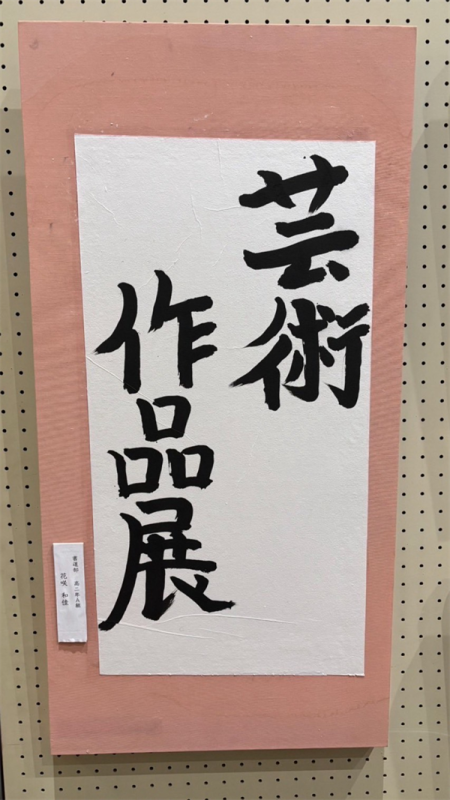 芸術
作品展
書道部 高二年A組
花咲 和佳